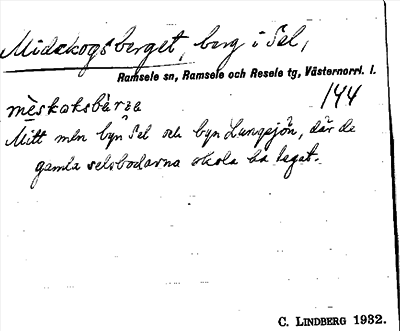 Midskogsberget, berg i Sel,
Ramsele sn, Ramsele och Resele tg, Västernorrl. l.
144
mèskoksbàrᴈe
Mitt mln byn Sel och byn Lungsjön, där de
gamla selsbodarna skola ha legat.
C. LINDBERG 1932.